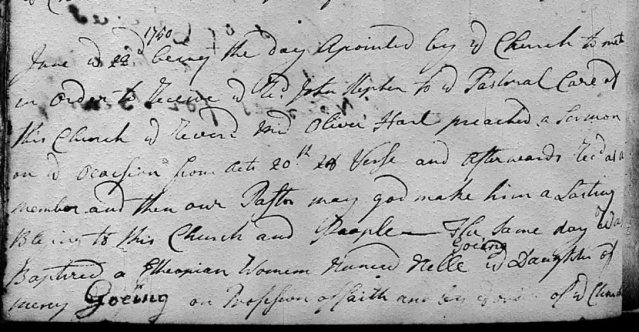 1750
June ye 22d being the day Apointed by ye Church to mete
in order to Receive ye Revd John Stephen to ye Pastoral Care of
this Church ye Reverd Mr Oliver Hart preached a Sermon
on ye Ocasion from Acts 20th 28 Verse and Afterwards Recd as a
member and then our Pastor may god make him a Lasting
Blesing to this Church and People — The same day was
Goeing
Baptized a Ethiopian Women Named Nelle ye Daughter of
Goeing on Profession of Faith and of ye Church